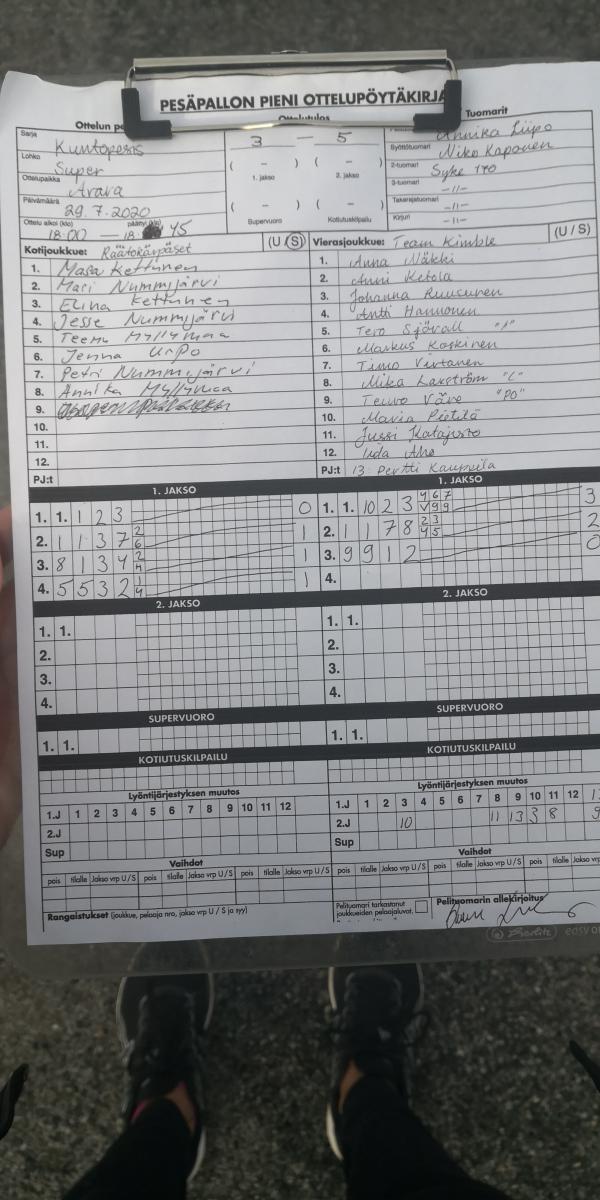 PESÄPALLON PIENI OTTELUPÖYTÄKIRJA
Ottelun pe
Ottelutulos
Tuomarit
Sarja Kuntopesis
3 — 5
Annika Liipo
Lohko Super
( – ) ( – )
Syöttötuomari Niko Kaponen
Ottelupaikka Arava
1. jakso 2. jakso
2-tuomari Syke 170
Päivämäärä 29.7.2020
( – ) ( – )
3-tuomari -11-
Takarajatuomari -11-
Ottelu alkoi (klo) 18.00 — päättyi (klo) 18 45
Supervuoro Kotiutuskilpailu
Kirjuri -11-
Kotijoukkue: Räätökärpäset (U / S)
Vierasjoukkue: Team Kimble (U / S)
1. Masa Kettunen
1. Anna Näkki
2. Mari Nummijärvi
2. Anni Ketola
3. Elina Kettunen
3. Johanna Ruusunen
4. Jesse Nummijärvi
4. Antti Hannonen
5. Teemu Myllymaa
5. Tero Sjövall
6. Jenna Urpo
6. Markus Koskinen
7. Petri Nummijärvi
7. Timo Virtanen
8. Annika Myllymaa
8. Mika Laxström "L"
9.
9. Teuvo Väre "PO"
10.
10. Maria Pietilä
11.
11. Jussi Katajisto
12.
12. Iida Aho
PJ:t
PJ:t 13. Pertti Kaupuila
1. JAKSO
1. JAKSO
1. 1. 1 2 3 0
1. 1. 10 2 3 4 6 7 V 9 9 3
2. 1 1 3 7 2 6 1
2. 1 1 7 8 2 3 4 5 2
3. 8 1 3 4 2 1
3. 9 9 1 2 0
4. 5 5 3 2 1 4 1
4.
2. JAKSO
2. JAKSO
1. 1.
1. 1.
2.
2.
3.
3.
4.
4.
SUPERVUORO
SUPERVUORO
1. 1.
1. 1.
KOTIUTUSKILPAILU
KOTIUTUSKILPAILU
Lyöntijärjestyksen muutos
Lyöntijärjestyksen muutos
1.J 1 2 3 4 5 6 7 8 9 10 11 12
1.J 1 2 3 4 5 6 7 8 9 10 11 12
2.J
2.J 10 11 13 3 8
Sup
Sup
Vaihdot
Vaihdot
pois tilalle Jakso vrp U / S pois tilalle Jakso vrp U / S pois tilalle Jakso vrp U / S
pois tilalle Jakso vrp U / S pois tilalle Jakso vrp U / S pois tilalle Jakso vrp
Rangaistukset (joukkue, pelaaja nro, jakso vrp U / S ja syy)
Pelituomari tarkastanut joukkueiden pelaajaluvat.
Pelituomarin allekirjoitus
Berlitz